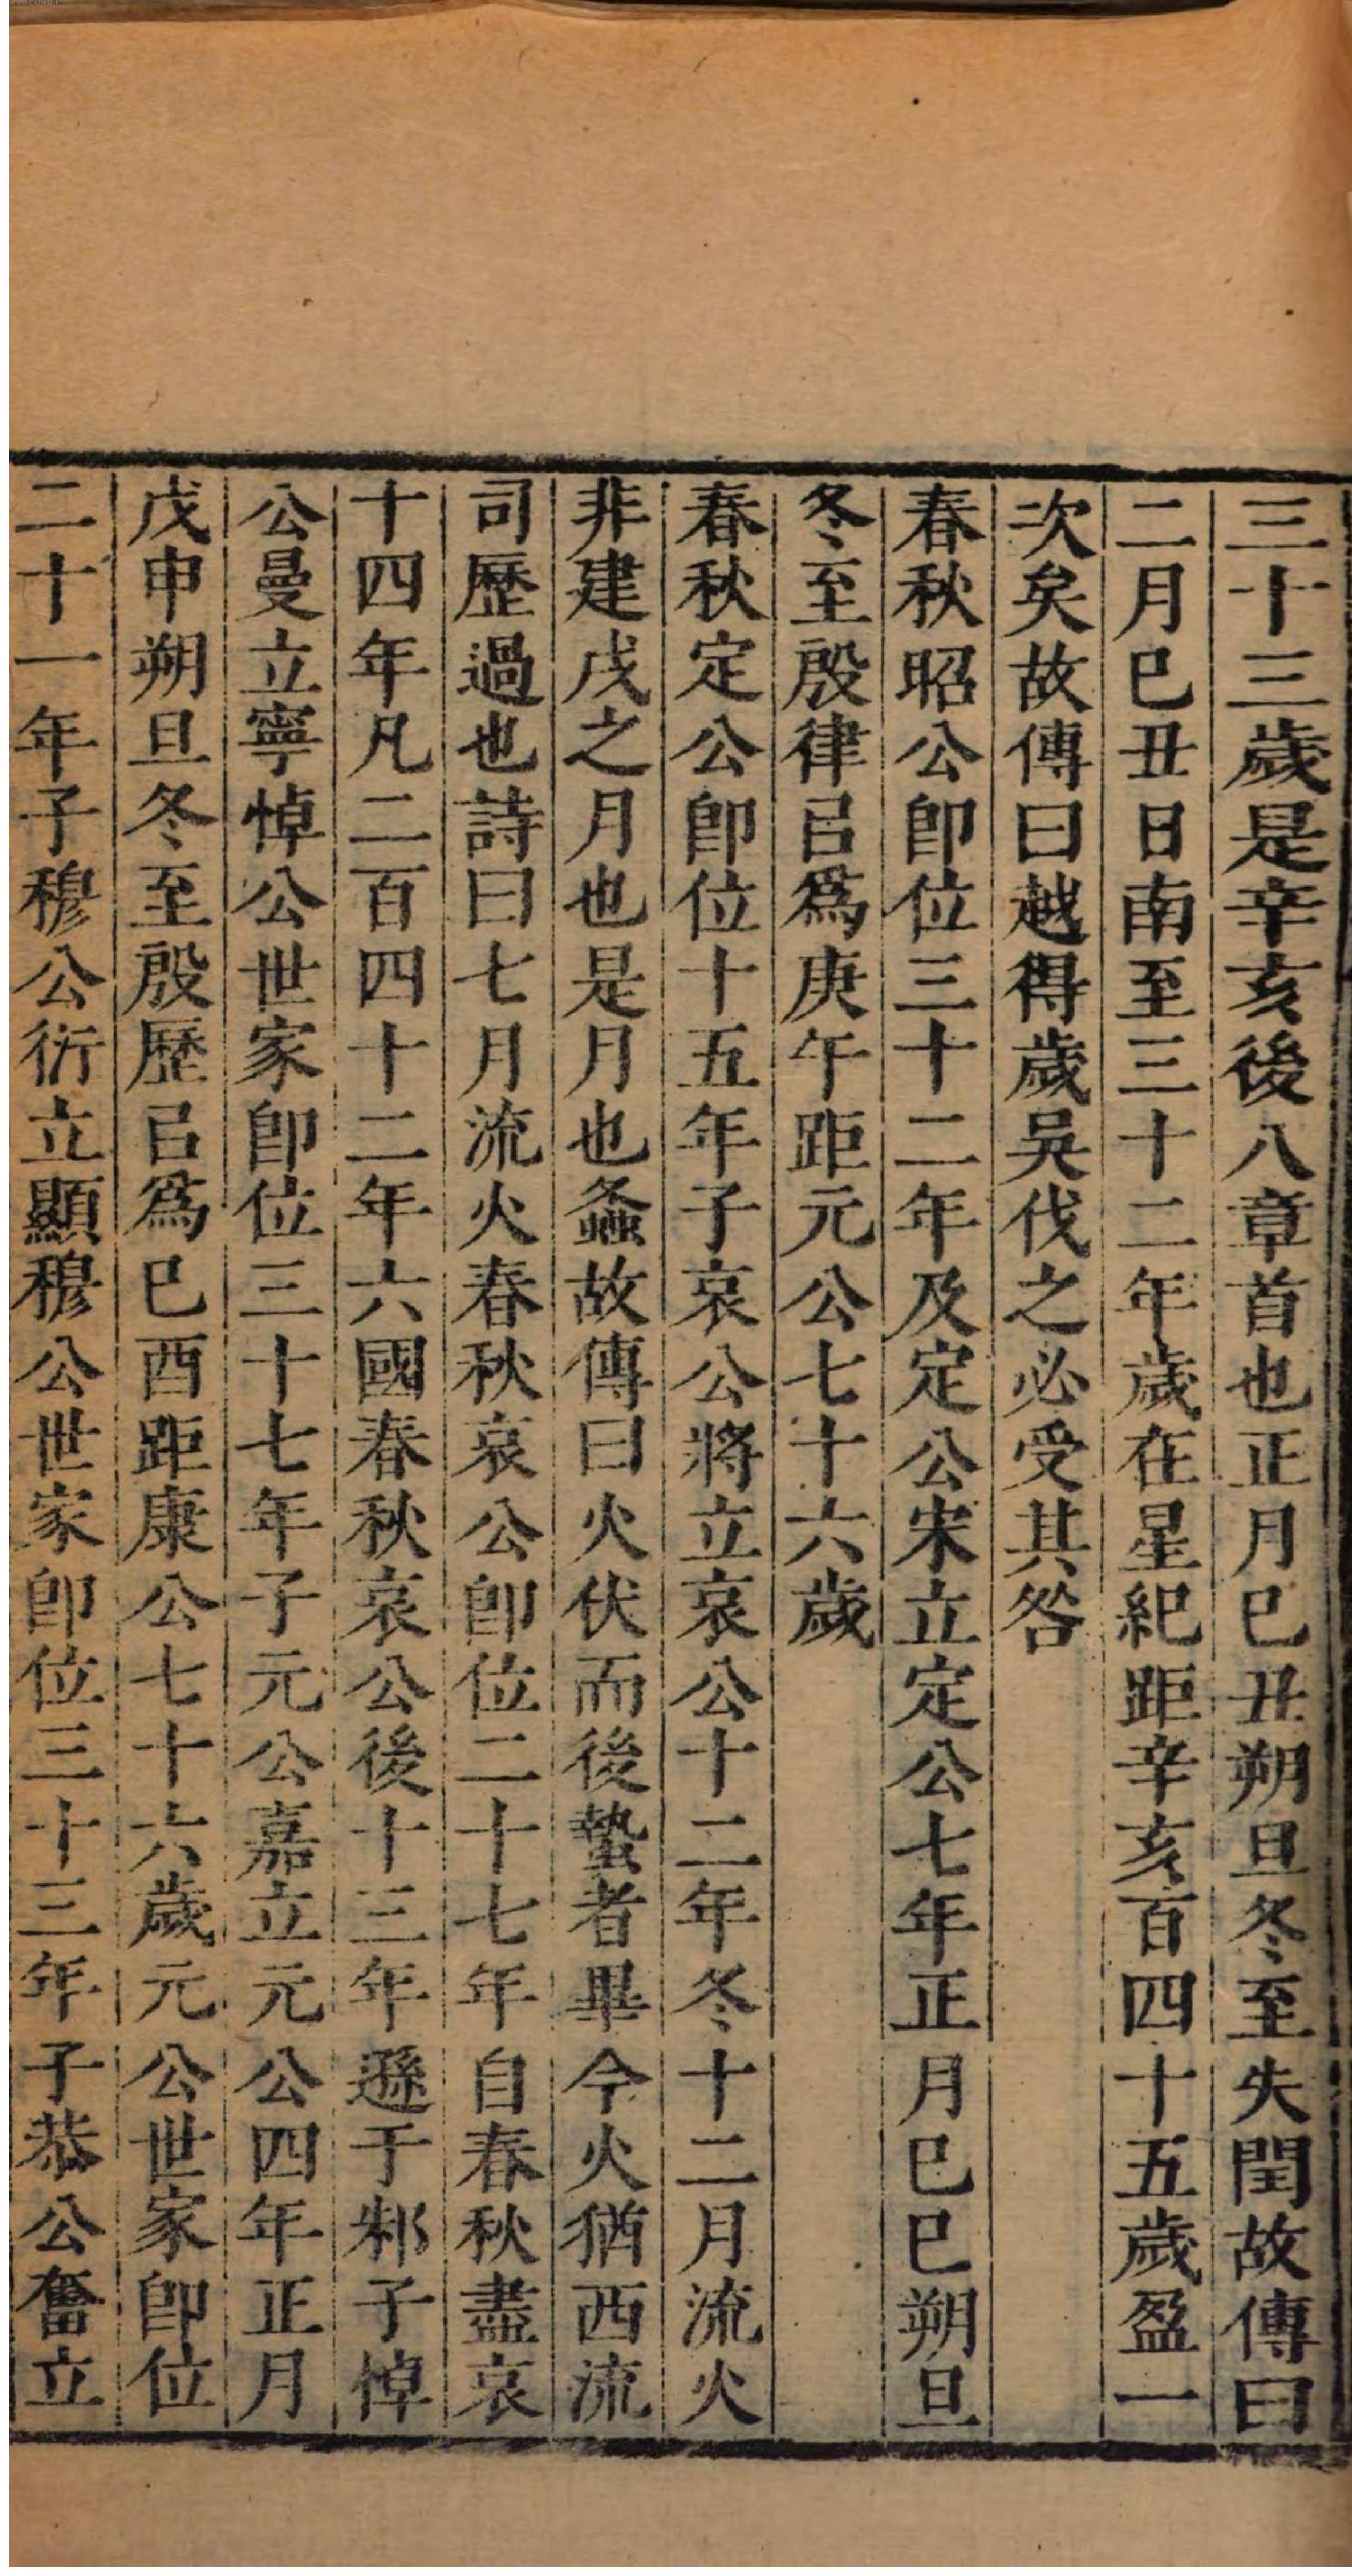 三十三歲是辛亥後八章首也正月巳丑朔旦冬至失閏故傳曰
二月巳丑日南至三十二年歲在星紀距辛亥百四十五歲盈一
次矣故傳曰越得歲吳伐之必受其咎
春秋昭公卽位三十二年及定公宋立定公七年正月巳巳朔旦
冬至殷律㠯爲庚午距元公七十六歲
春秋定公卽位十五年子哀公將立哀公十二年冬十二月流火
非建戌之月也是月也螽故傳曰火伏而後蟄者畢今火猶西流
司歷過也詩曰七月流火春秋哀公卽位二十七年自春秋盡哀
十四年凡二百四十二年六國春秋哀公後十三年遜于邾子悼
公曼立寧悼公世家卽位三十七年子元公嘉立元公四年正月
戊申朔旦冬至殷歷㠯爲巳酉距康公七十六歲元公世家卽位
二十一年子穆公衍立顯穆公世家卽位三十三年子恭公奮立